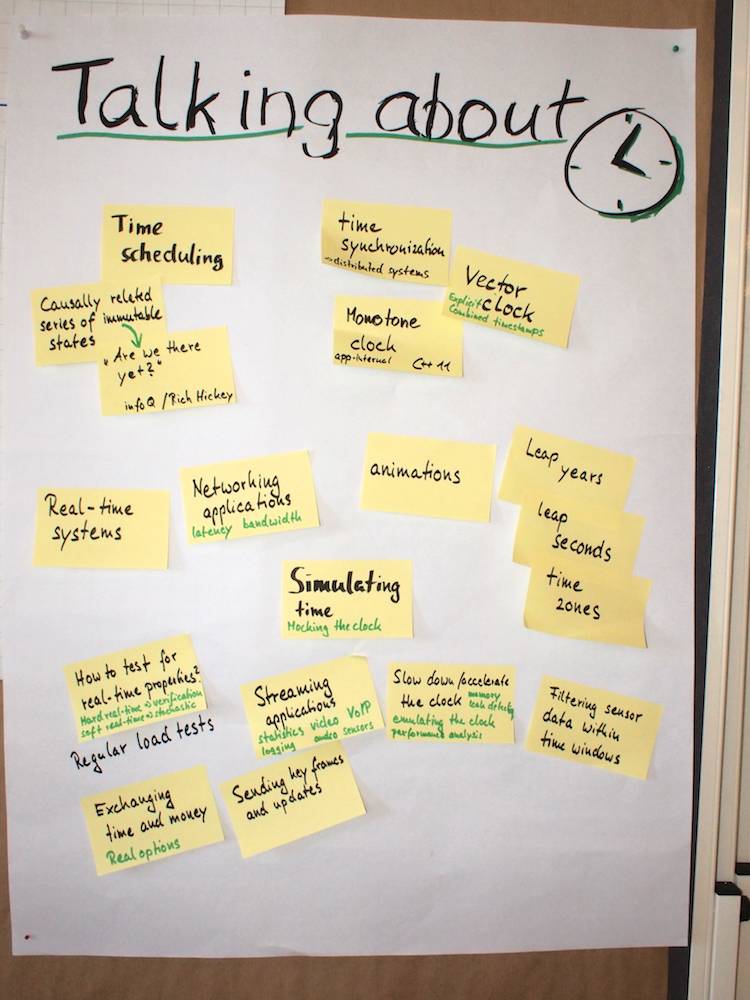 Talking about
Time
scheduling
Causally related
series of immutable
states
"Are we there
yet?"
infoQ / Rich Hickey
time
synchronization
→ distributed systems
Vector
clock
Explicit
Combined timestamps
Monotone
clock
app-internal C++ 11
Real-time
systems
Networking
applications
latency bandwidth
animations
Leap
years
leap
seconds
time
zones
Simulating
time
Mocking the clock
How to test for
real-time properties?
Hard real-time → verification
soft real-time → stochastic
Regular load tests
Streaming
applications
statistics video VoIP
logging audio sensors
Slow down/accelerate
the clock memory
leak detecting
emulating the clock
performance analysis
Filtering sensor
data within
time windows
Exchanging
time and money
Real options
Sending key frames
and updates